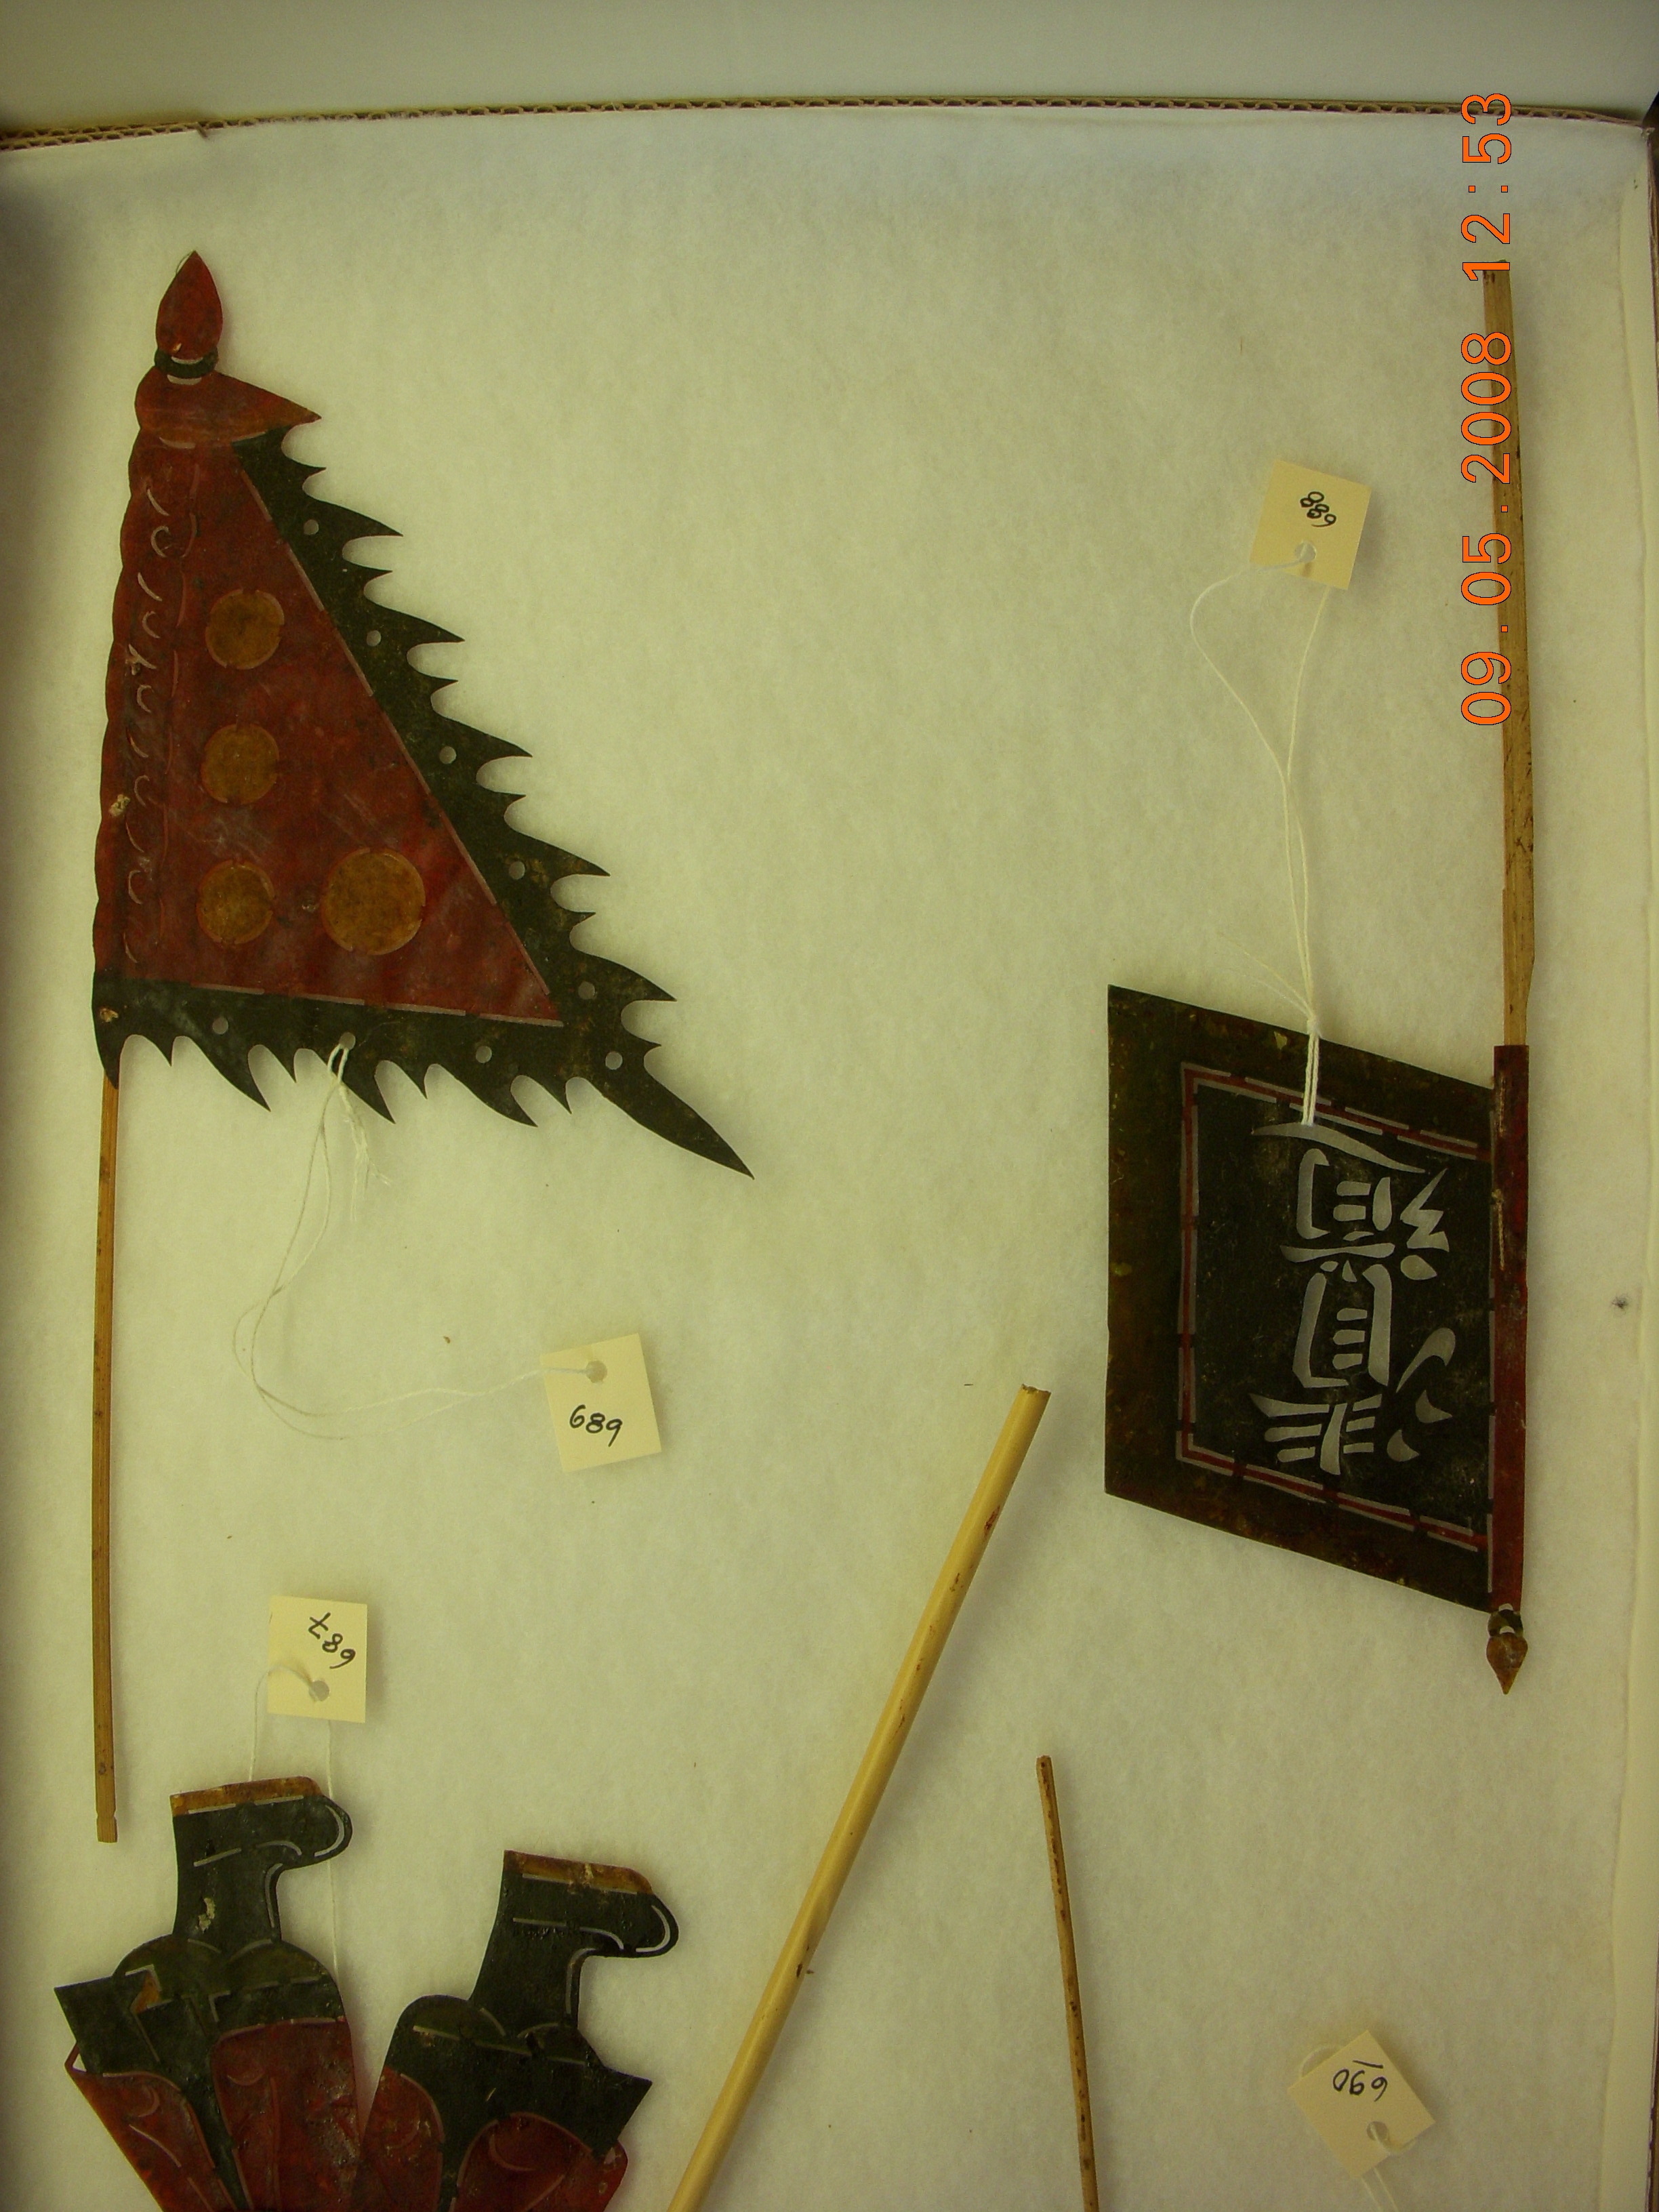 09.05.2008 12:53
688
清道
689
687
690